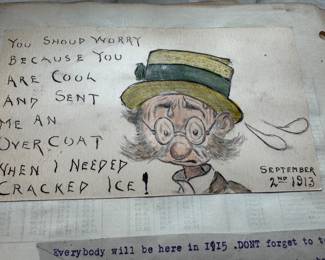 YOU SHOUD WORRY
BECAUSE YOU
ARE COOL
AND SENT
ME AN
OVERCOAT
WHEN I NEEDED
CRACKED ICE!
SEPTEMBER
2ND 1913
Everybody will be here in 1915 .DONT forget to